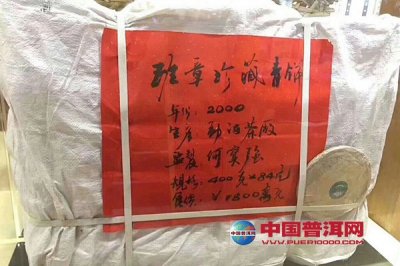 班章珍藏青饼
年份：2000
生产：勐海茶厰
监製：何宝强
规格：400克×84饼
售价：￥1800萬元
中国普洱网
WWW.PUER10000.COM